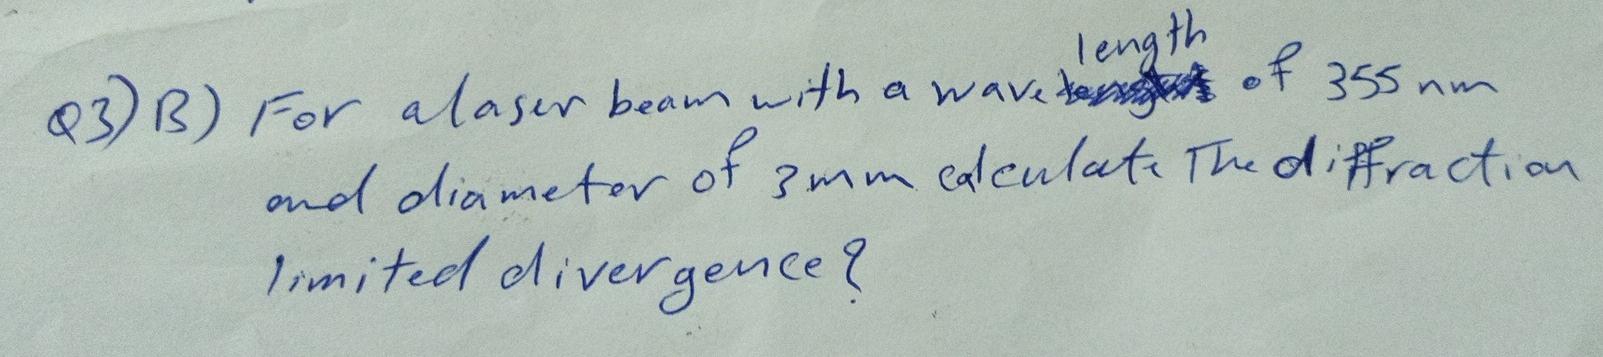 Q3) B) For a laser beam with a wave length of 355 nm
and diameter of 3mm calculate The diffraction
limited divergence?